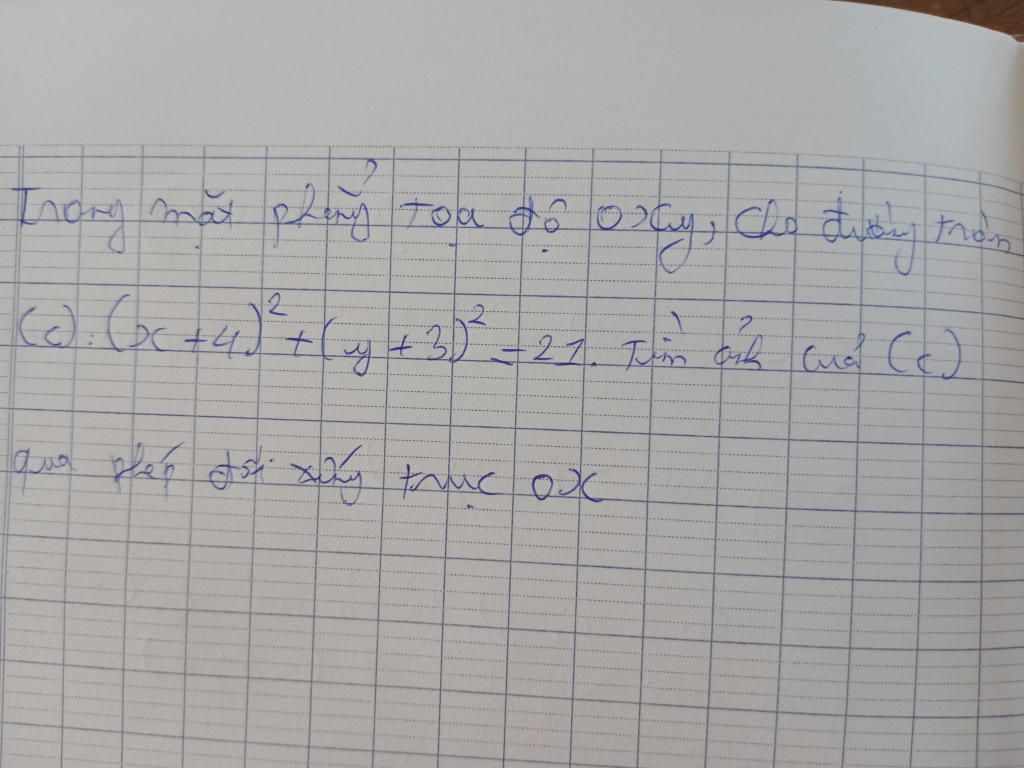 Trong mặt phẳng tọa độ oxy, cho đường tròn
(c): (x+4)² + (y+3)² = 21. Tìm ảnh của (c)
qua phép đối xứng trục ox